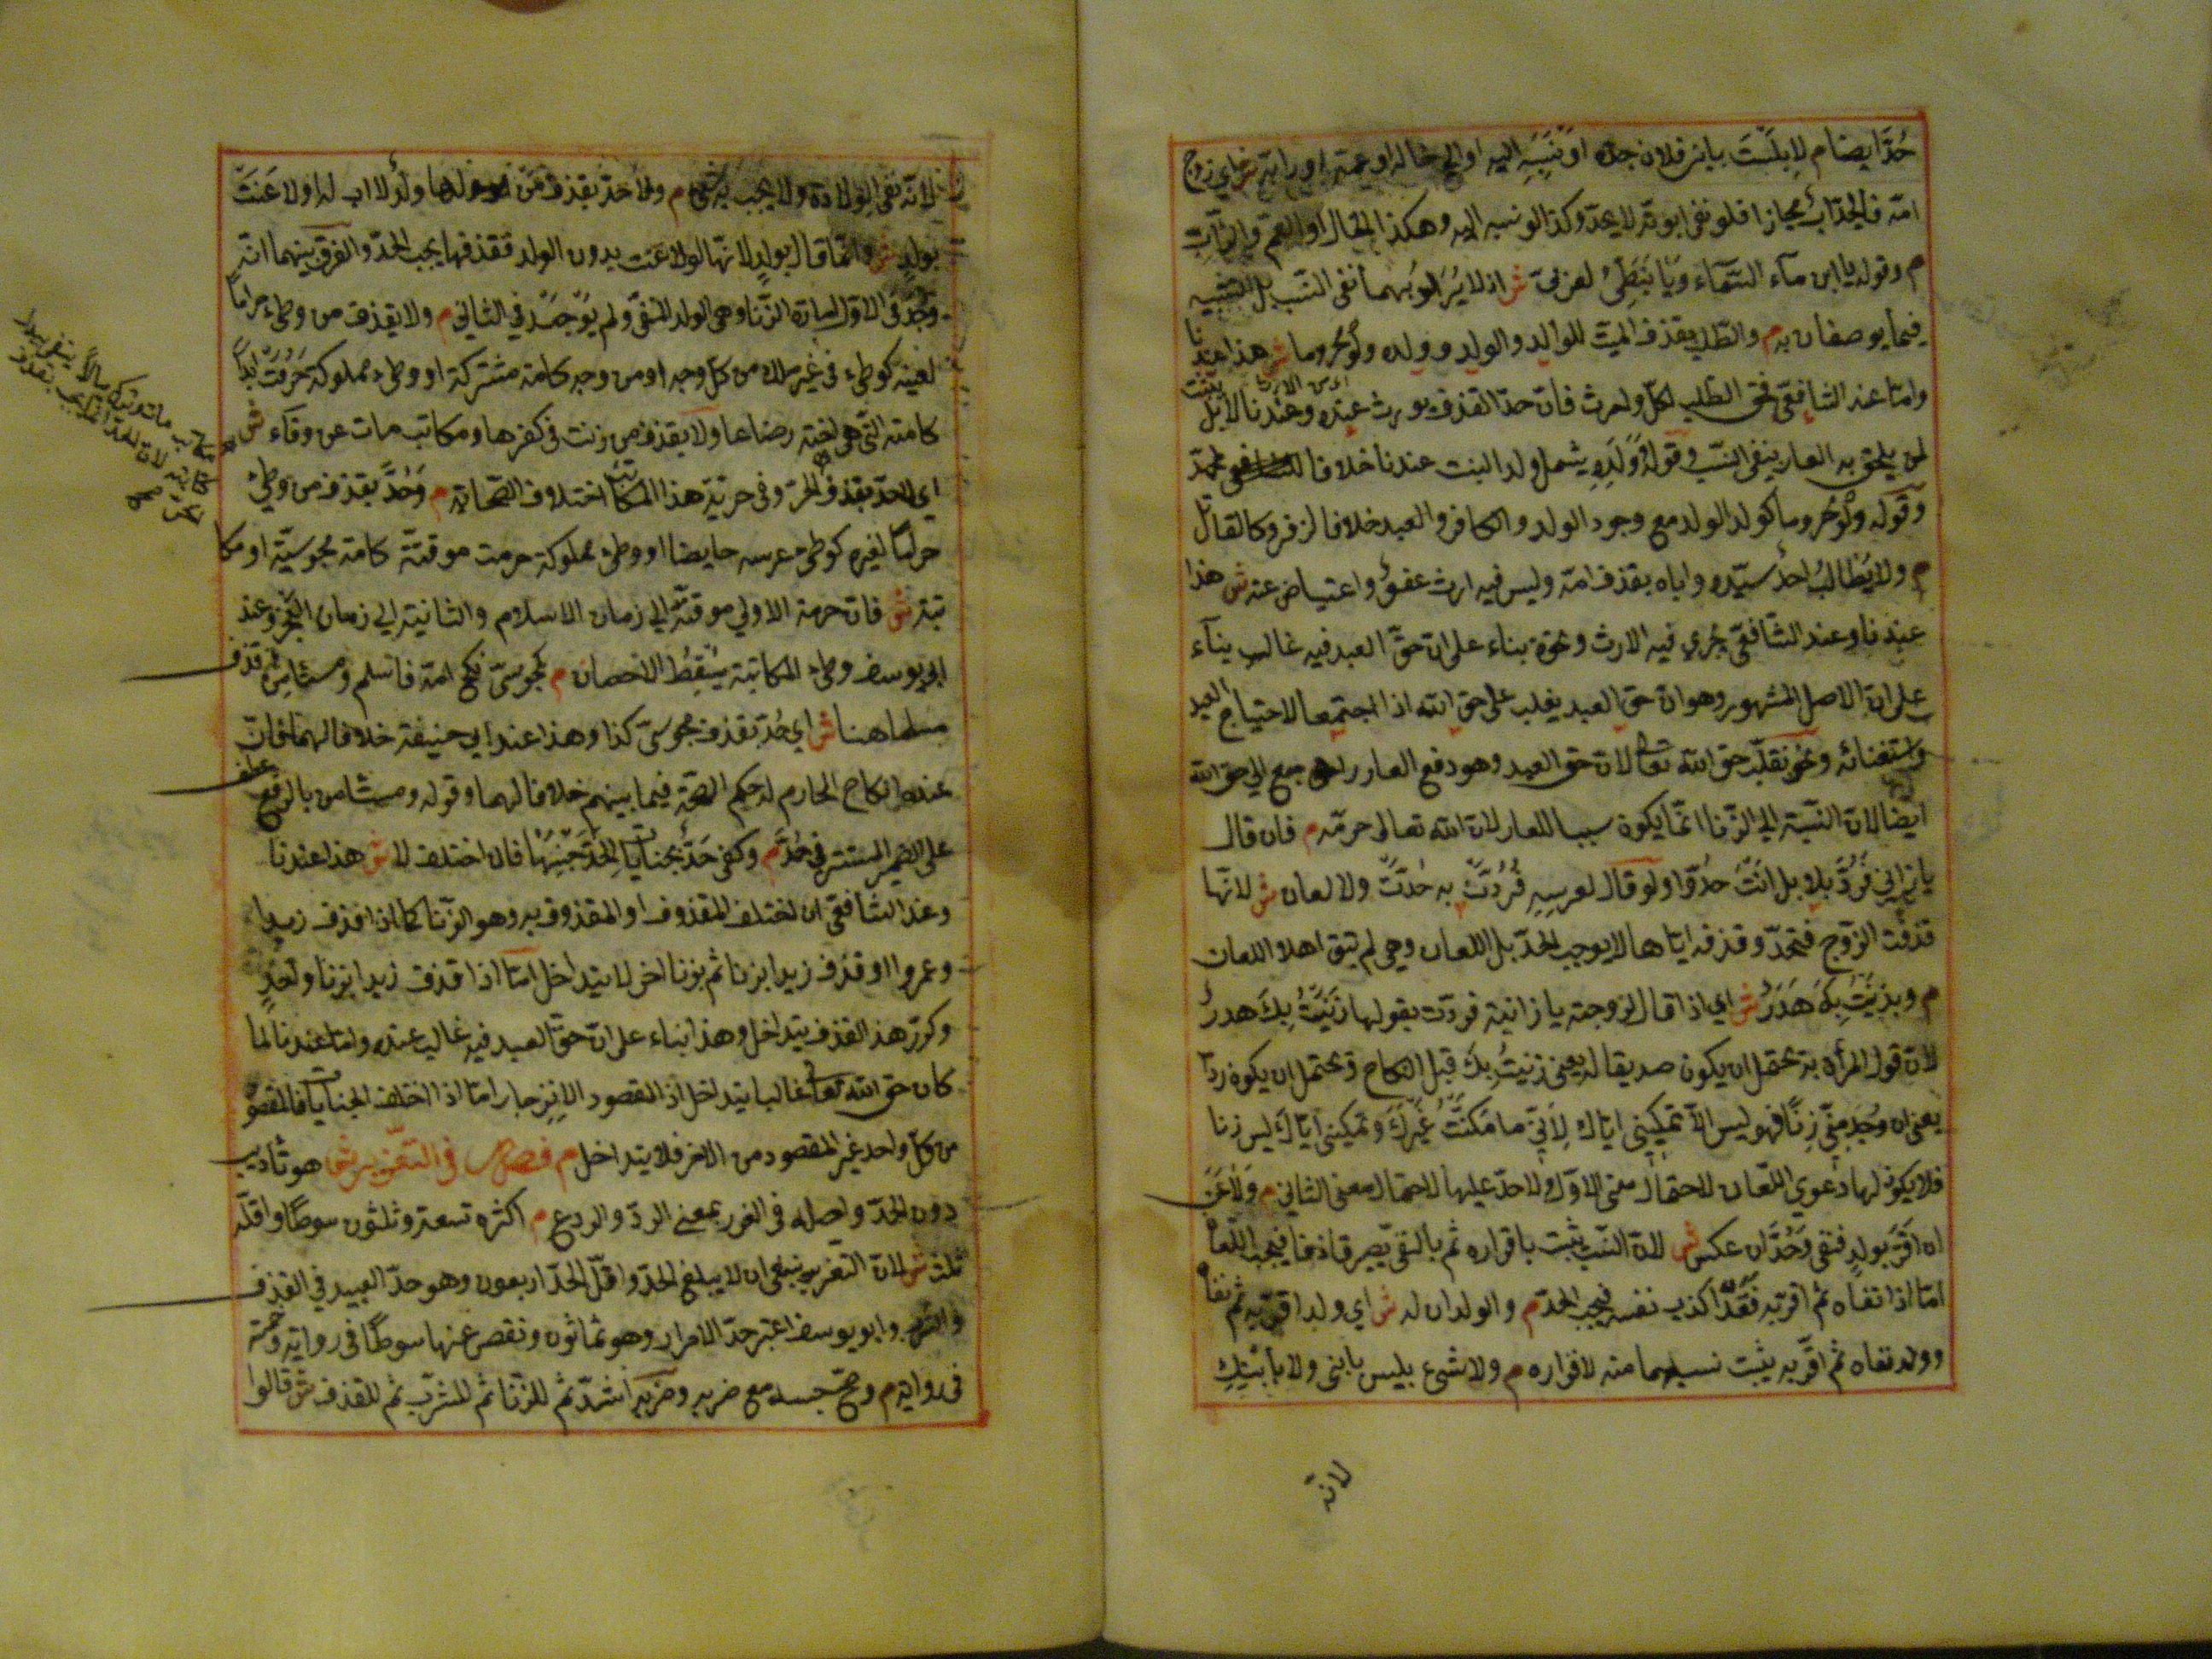 حُدَّ ايضا م لا بلَسْتَ بابن فلان جدّه او نَسَبَه اليه او الي خاله او عمّه او رابّه ش اي زوج
امّه فالجدّ اب مجازا فلو نفى ابوته لا يحدّ وكذا لو نسبه اليه وهكذا الخال او العم والرابّ
م وقوله يا ابن مآء السّمآء ويا نَبَطِيُّ لعربيّ ش اذ لا يُرَاد بهما نفي النسب بل التشبيه
فيما يوصفان به م والطّلب بقذف الميت للوالد والولد وولده ولو محروما ش هذا عندنا
وامّا عند الشافعيّ فحق الطّلب لكلّ وارث فانّ حدّ القذف يورث عنده وعندنا لا بل يثبت
لمن يلحق به العار بنفي النسب وقوله وَوَلَدِهِ يشمل ولد البنت عندنا خلافا لمحمّد
وقوله ولو محروما كولد الولد مع وجود الولد والكافر والعبد خلافا لزفر وكالقاتل
م ولا يُطَالبُ احد سيّده واباه بقذف امّه وليس فيه ارث عفوٌ واعتياض عنه ش هذا
عندنا وعند الشّافعيّ يجري فيه الارث ونحوه بناء على انّ حقّ العبد فيه غالب بناء
على انّ الاصل المشهور وهو ان حق العبد يغلب على حق الله اذا اجتمعا لاحتياج العبد
واستغنائه ونحن نغلّب حق الله تعالى لانّ حق العبد وهو دفع العار راجع الي حق الله
ايضا لانّ النسبة الي الزّنا انّما يكون سببا للعار لانّ الله تعالى حرمّه م فان قال
يا زاني فَرُدَّ بلا بل انتَ حدّا ولو قال لعرسه فَرُدَّتْ به حُدَّتْ ولا لعان ش لانّها
قذفت الزّوج فتحدّ وقذفه ايّاها لا يوجب الحدّ بل اللعان وهي لم تبق اهلا اللعان
م وبزنيْتُ بِكَ هَدَرٌ ش اي اذا قال لزوجته يا زانية فردّت بقولها زَنَيْتُ بِكَ هدرٌ
لانّ قول المرأة به يحتمل ان يكون صديقا له يعني زنيتُ بك قبل النكاح ويحتمل ان يكون ردّا
يعني ان وُجِدَ منّي زِنًا فهو ليس الاّ تمكيني ايّاك لأنّي ما مَكنّتُ غيْرَكَ وتمكيني ايّاكَ ليس زنا
فلا يكون لها دعوي اللّعان لاحتمال معني الاوّل ولا حدّ عليها لاحتمال معني الثاني م ولاعَن
ان اقَرّ بولدٍ فنفى وحُدَّ ان عكس ش لانّ النسب يثبت باقراره ثم بالنّفي يصير قاذفا فيجب اللّعان
امّا اذا نفاه ثم اقرّ به فقد اكذب نفسه فيجب الحدّ م والولدان له ش اي ولد اقرّ به ثم نفاه
وولد نفاه ثم اقرّ به يثبت نسبهما منه لاقراره م ولا شيء بليس بابني ولا بابنِكِ
لانّه
لانّه نفي الولادة ولا يجب به شيء م ولا حدّ بقذف من لها ولد لا اب له او لاعَنَتْ
بولدٍ ش وانّما قال بولدٍ لانّها لو لاعنت بدون الولد فقذفها يجب الحدّ والفرق بينهما انّه
وُجِدَ في الاوّل امارة الزّنا وهي الولد المنفيّ ولم يوجد في الثاني م ولا بقذف من وطئ حراما
لعينه كوطئ في غير ملك من كلّ وجه او من وجه كامة مشتركة او وطئ مملوكة حَرُمَتْ ابدًا
كامته التي هي اخته رضاعا ولا بقذف من زنت في كفرها ومكاتب مات عن وفآء ش
اي لا حدّ بقذف وفي حريّة هذا المكاتب اختلاف الصّحابة م وحُدَّ بقذف من وطئ
حراما لغيره كوطئ عرسه حايضا او وطئ مملوكة حرمت موقّتة كامة مجوسيّة او مكا
تبة ش فانّ حرمة الاولي موقّتة الي زمان الاسلام والثانية الي زمان العجز وعند
ابو يوسف وطئ المكاتبة يُسْقِطُ الاحصان م كمجوسيّ نكح امّه فاسلم ومستأمن قذف
مسلما هنا ش اي حُدّ بقذف مجوسيّ كذا وهذا عند ابي حنيفة خلافا لهما فانّ
عنده نكاح المحارم له حكم الصّحة فيما بينهم خلافا لهما وقوله ومستأمن بالرفع عطف
على الضمير المستتر في حُدَّ م وكفى حَدٌّ بجناياتٍ اتّحد جنسها فان اختلف لا ش هذا عندنا
وعند الشافعيّ ان اختلف المقذوف او المقذوف به وهو الزّنا كما اذا قذف زيدا
وعمروا او قذف زيدا بزنا ثم بزنا اخر لا يتداخل امّا اذا قذف زيدا بزنا واحدٍ
وكرّر هذ القذف يتداخل وهذا بناء على انّ حقّ العبد فيه غالب عنده وامّا عندنا لما
كان حق الله تعالى غالبا يتداخل اذ المقصود الانزجار امّا اذا اختلف الجنايات فالمقصو
من كلّ واحد غير المقصود من الاخر فلا يتداخل م فصل في التعزير ش هو تاديب
دون الحدّ واصله في الغزر بمعني الردّ والردع م اكثره تسعة وثلثون سوطًا واقلّه
ثلث ش لانّ التعزير ينبغي ان لا يبلغ الحدّ واقلّ الحدّ اربعون وهو حدّ العبيد في القذف
والشرب وابو يوسف اعتبر حدّ الاحرار وهو ثمانون ونقص عنها سوطًا في رواية وخمسة
في رواية م وصحّ حبسه مع ضربه وضربه اشدّ ثم للزّنا ثم للشرب ثم للقذف ش قالوا